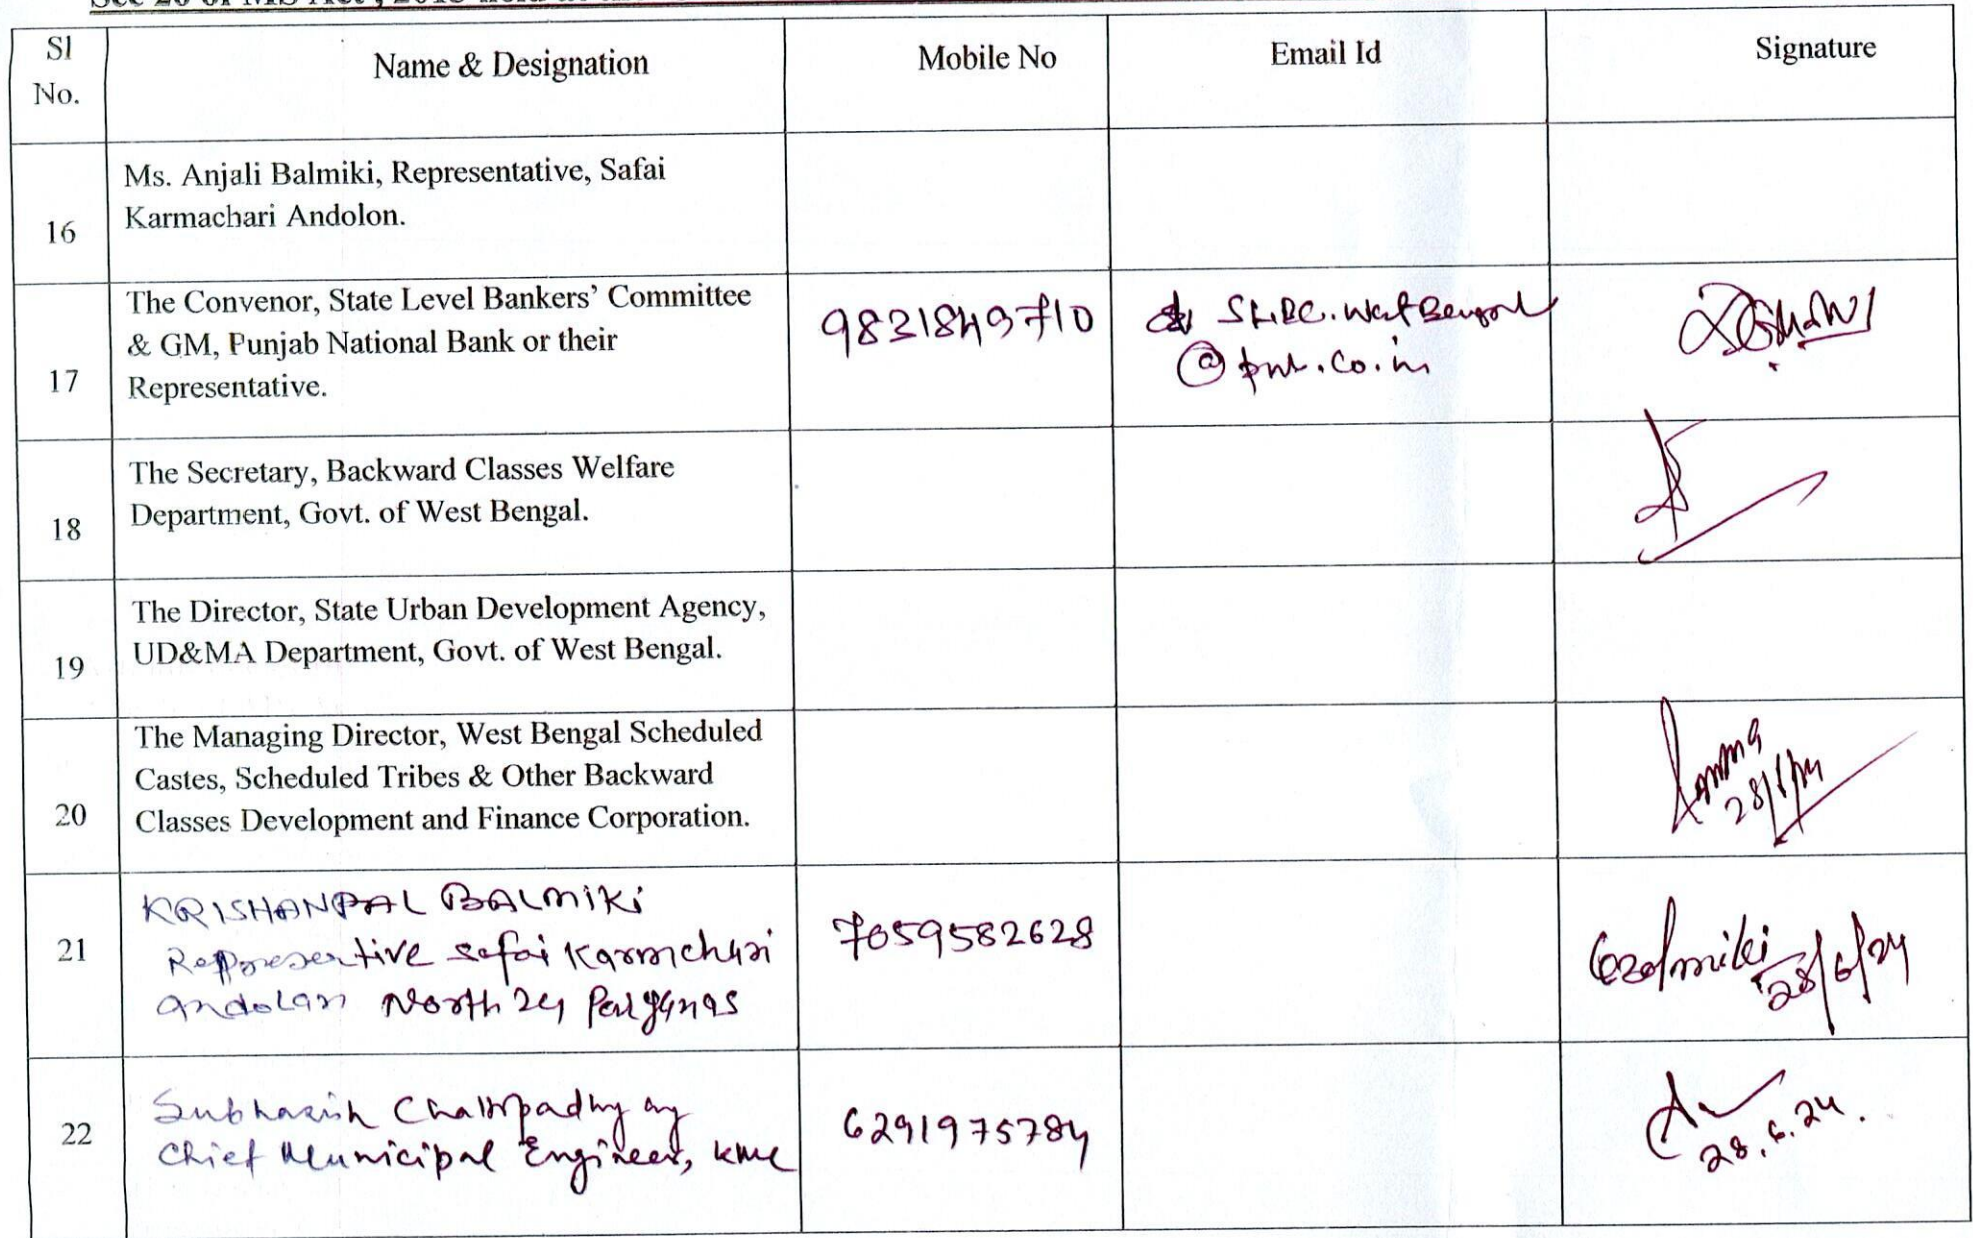 Sl
No.
Name & Designation
Mobile No
Email Id
Signature
16
Ms. Anjali Balmiki, Representative, Safai
Karmachari Andolon.
17
The Convenor, State Level Bankers' Committee
& GM, Punjab National Bank or their
Representative.
9831849710
SLBC.WestBengal
@pnb.co.in
18
The Secretary, Backward Classes Welfare
Department, Govt. of West Bengal.
19
The Director, State Urban Development Agency,
UD&MA Department, Govt. of West Bengal.
20
The Managing Director, West Bengal Scheduled
Castes, Scheduled Tribes & Other Backward
Classes Development and Finance Corporation.
28/6/24
21
KRISHANPAL BALMIKI
Representive safai Karmchari
andolan North 24 Parganas
7059582628
28/6/24
22
Subhasish Chattopadhyay
Chief Municipal Engineer, KMC
6291975784
28.6.24.